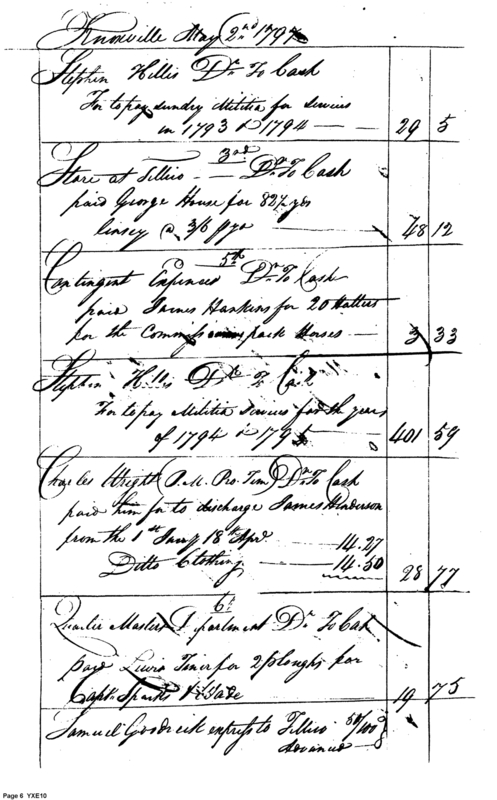 Knoxville May 2nd 1797
Stephen Hillis Dr. To Cash
For to pay sundry Militia for Services
in 1793 & 1794 29 5
3rd
Store at Tellico Dr. To Cash
paid George House for 82½ yds
linsey @ 3/6 p yd 48 12
5th
Contingent Expences Dr. To Cash
paid James Hankins for 20 Halters
for the Commissioners pack Horses 3 33
Stephen Hillis Dr. To Cash
For to pay Militia Services for the years
of 1794 & 1795 401 59
Charles Wright P.M. Pro. Tem) Dr. To Cash
paid him for to discharge James Henderson
from the 1st Jany 18th Apr. 14.27
Ditto Clothing 14.50
28 77
6th
Quarter Masters Department Dr. To Cash
paid Lewis Tiner for 2 ploughs for
Capt. Sparks 19 75
Samuel Goodrick express to Tellico 50/100
advanced